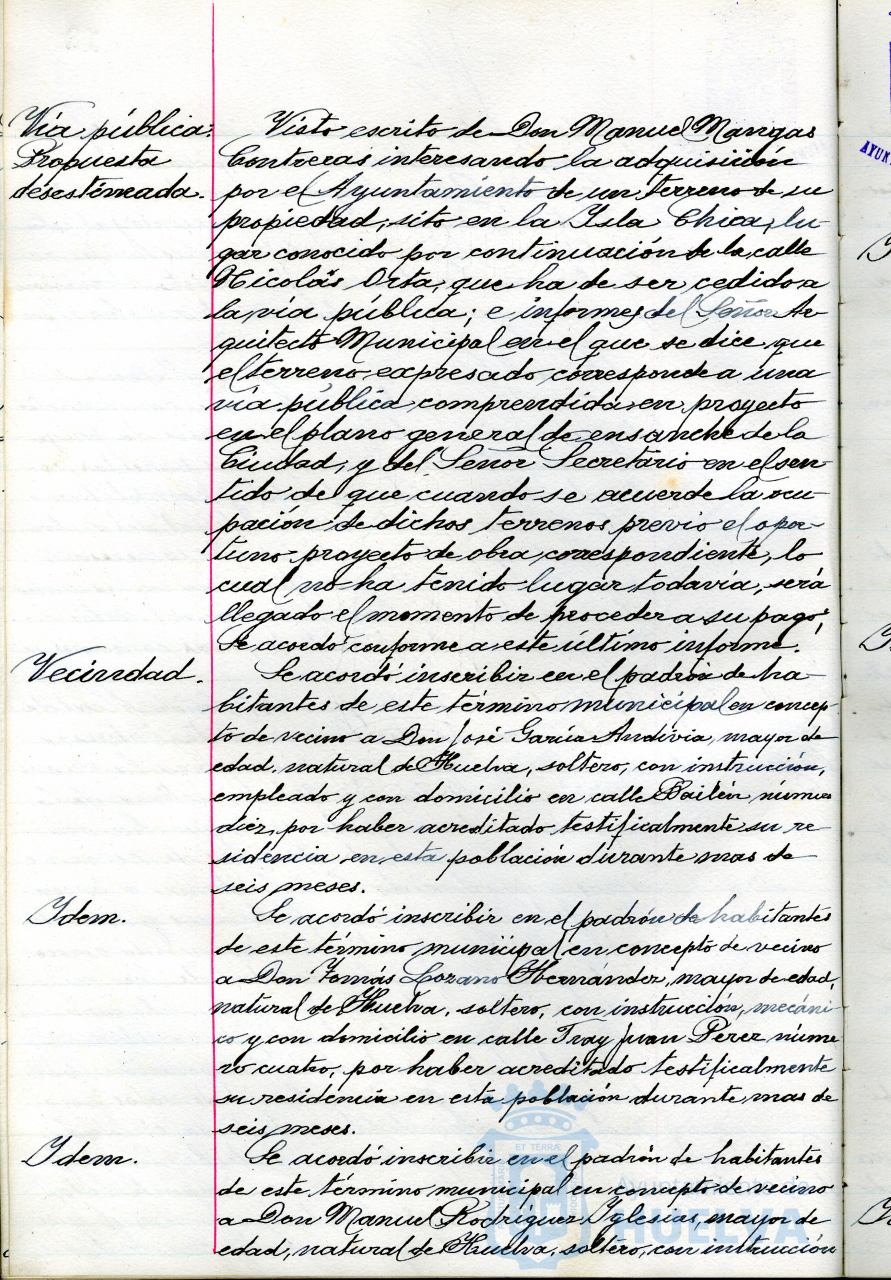 Vía pública:
Propuesta
desestimada.
Visto escrito de Don Manuel Mangas
Contreras interesando la adquisición
por el Ayuntamiento de un terreno de su
propiedad, sito en la Isla Chica, lu-
gar conocido por continuación de la calle
Nicolás Orta, que ha de ser cedido a
la vía pública; e informes del Señor Ar-
quitecto Municipal en el que se dice que
el terreno expresado corresponde a una
vía pública comprendida en proyecto
en el plano general de ensanche de la
Ciudad, y del Señor Secretario en el sen-
tido de que cuando se acuerde la ocu-
pación de dichos terrenos previo el opor-
tuno proyecto de obra correspondiente, lo
cual no ha tenido lugar todavía, será
llegado el momento de proceder a su pago;
Se acordó conforme a este último informe.
Vecindad.
Se acordó inscribir en el padrón de ha-
bitantes de este término municipal en concep-
to de vecino a Don José García Andivia, mayor de
edad, natural de Huelva, soltero, con instrucción,
empleado y con domicilio en calle Bailén número
diez, por haber acreditado testificalmente su re-
sidencia en esta población durante mas de
seis meses.
Idem.
Se acordó inscribir en el padrón de habitantes
de este término municipal en concepto de vecino
a Don Tomás Lozano Hernández, mayor de edad,
natural de Huelva, soltero, con instrucción, mecáni-
co y con domicilio en calle Fray Juan Pérez núme-
ro cuatro, por haber acreditado testificalmente
su residencia en esta población durante mas de
seis meses.
Idem.
Se acordó inscribir en el padrón de habitantes
de este término municipal en concepto de vecino
a Don Manuel Rodríguez Iglesias, mayor de
edad, natural de Huelva, soltero, con instrucción
ET TERRÆ
Ayuntamiento de
HUELVA